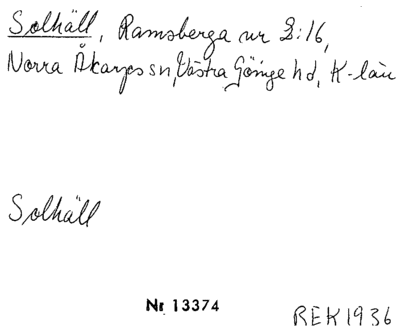 Solhäll, Ramsberga nr 2:16,
Norra Åkarps sn, Västra Göinge hd, K-län
Solhäll
Nr 13374
REK1936